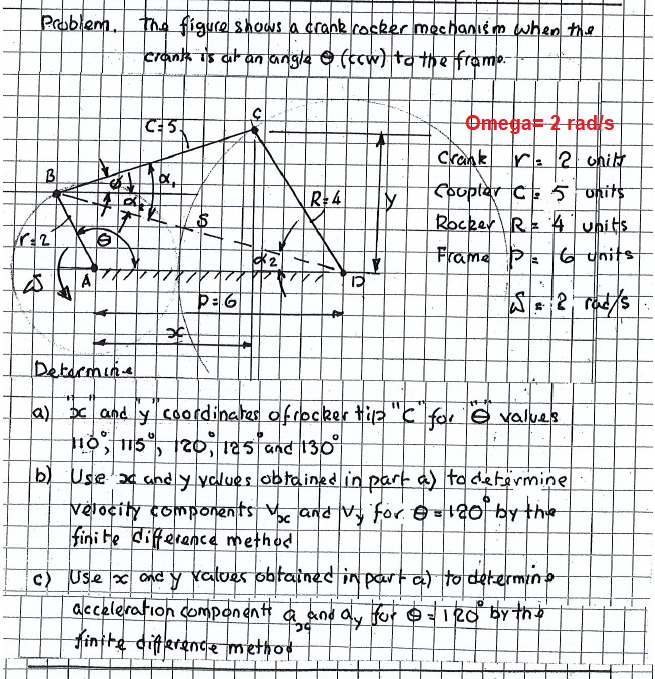 Problem. The figure shows a crank rocker mechanism when the
crank is at an angle θ (ccw) to the frame.
C
C=5
Omega= 2 rad/s
Crank r = 2 units
B
φ
α₁
α₂
R=4
y
Coupler C = 5 units
S
Rocker R = 4 units
r=2
θ
α2
Frame P = 6 units
A
D
ω
P=6
ω = 2 rad/s
x
Determine
a) "x" and "y" coordinates of rocker tip "C" for "θ" values
110°, 115°, 120°, 125° and 130°
b) Use x and y values obtained in part a) to determine
velocity components Vx and Vy for θ = 120° by the
finite difference method
c) Use x and y values obtained in part a) to determine
acceleration components ax and ay for θ = 120° by the
finite difference method